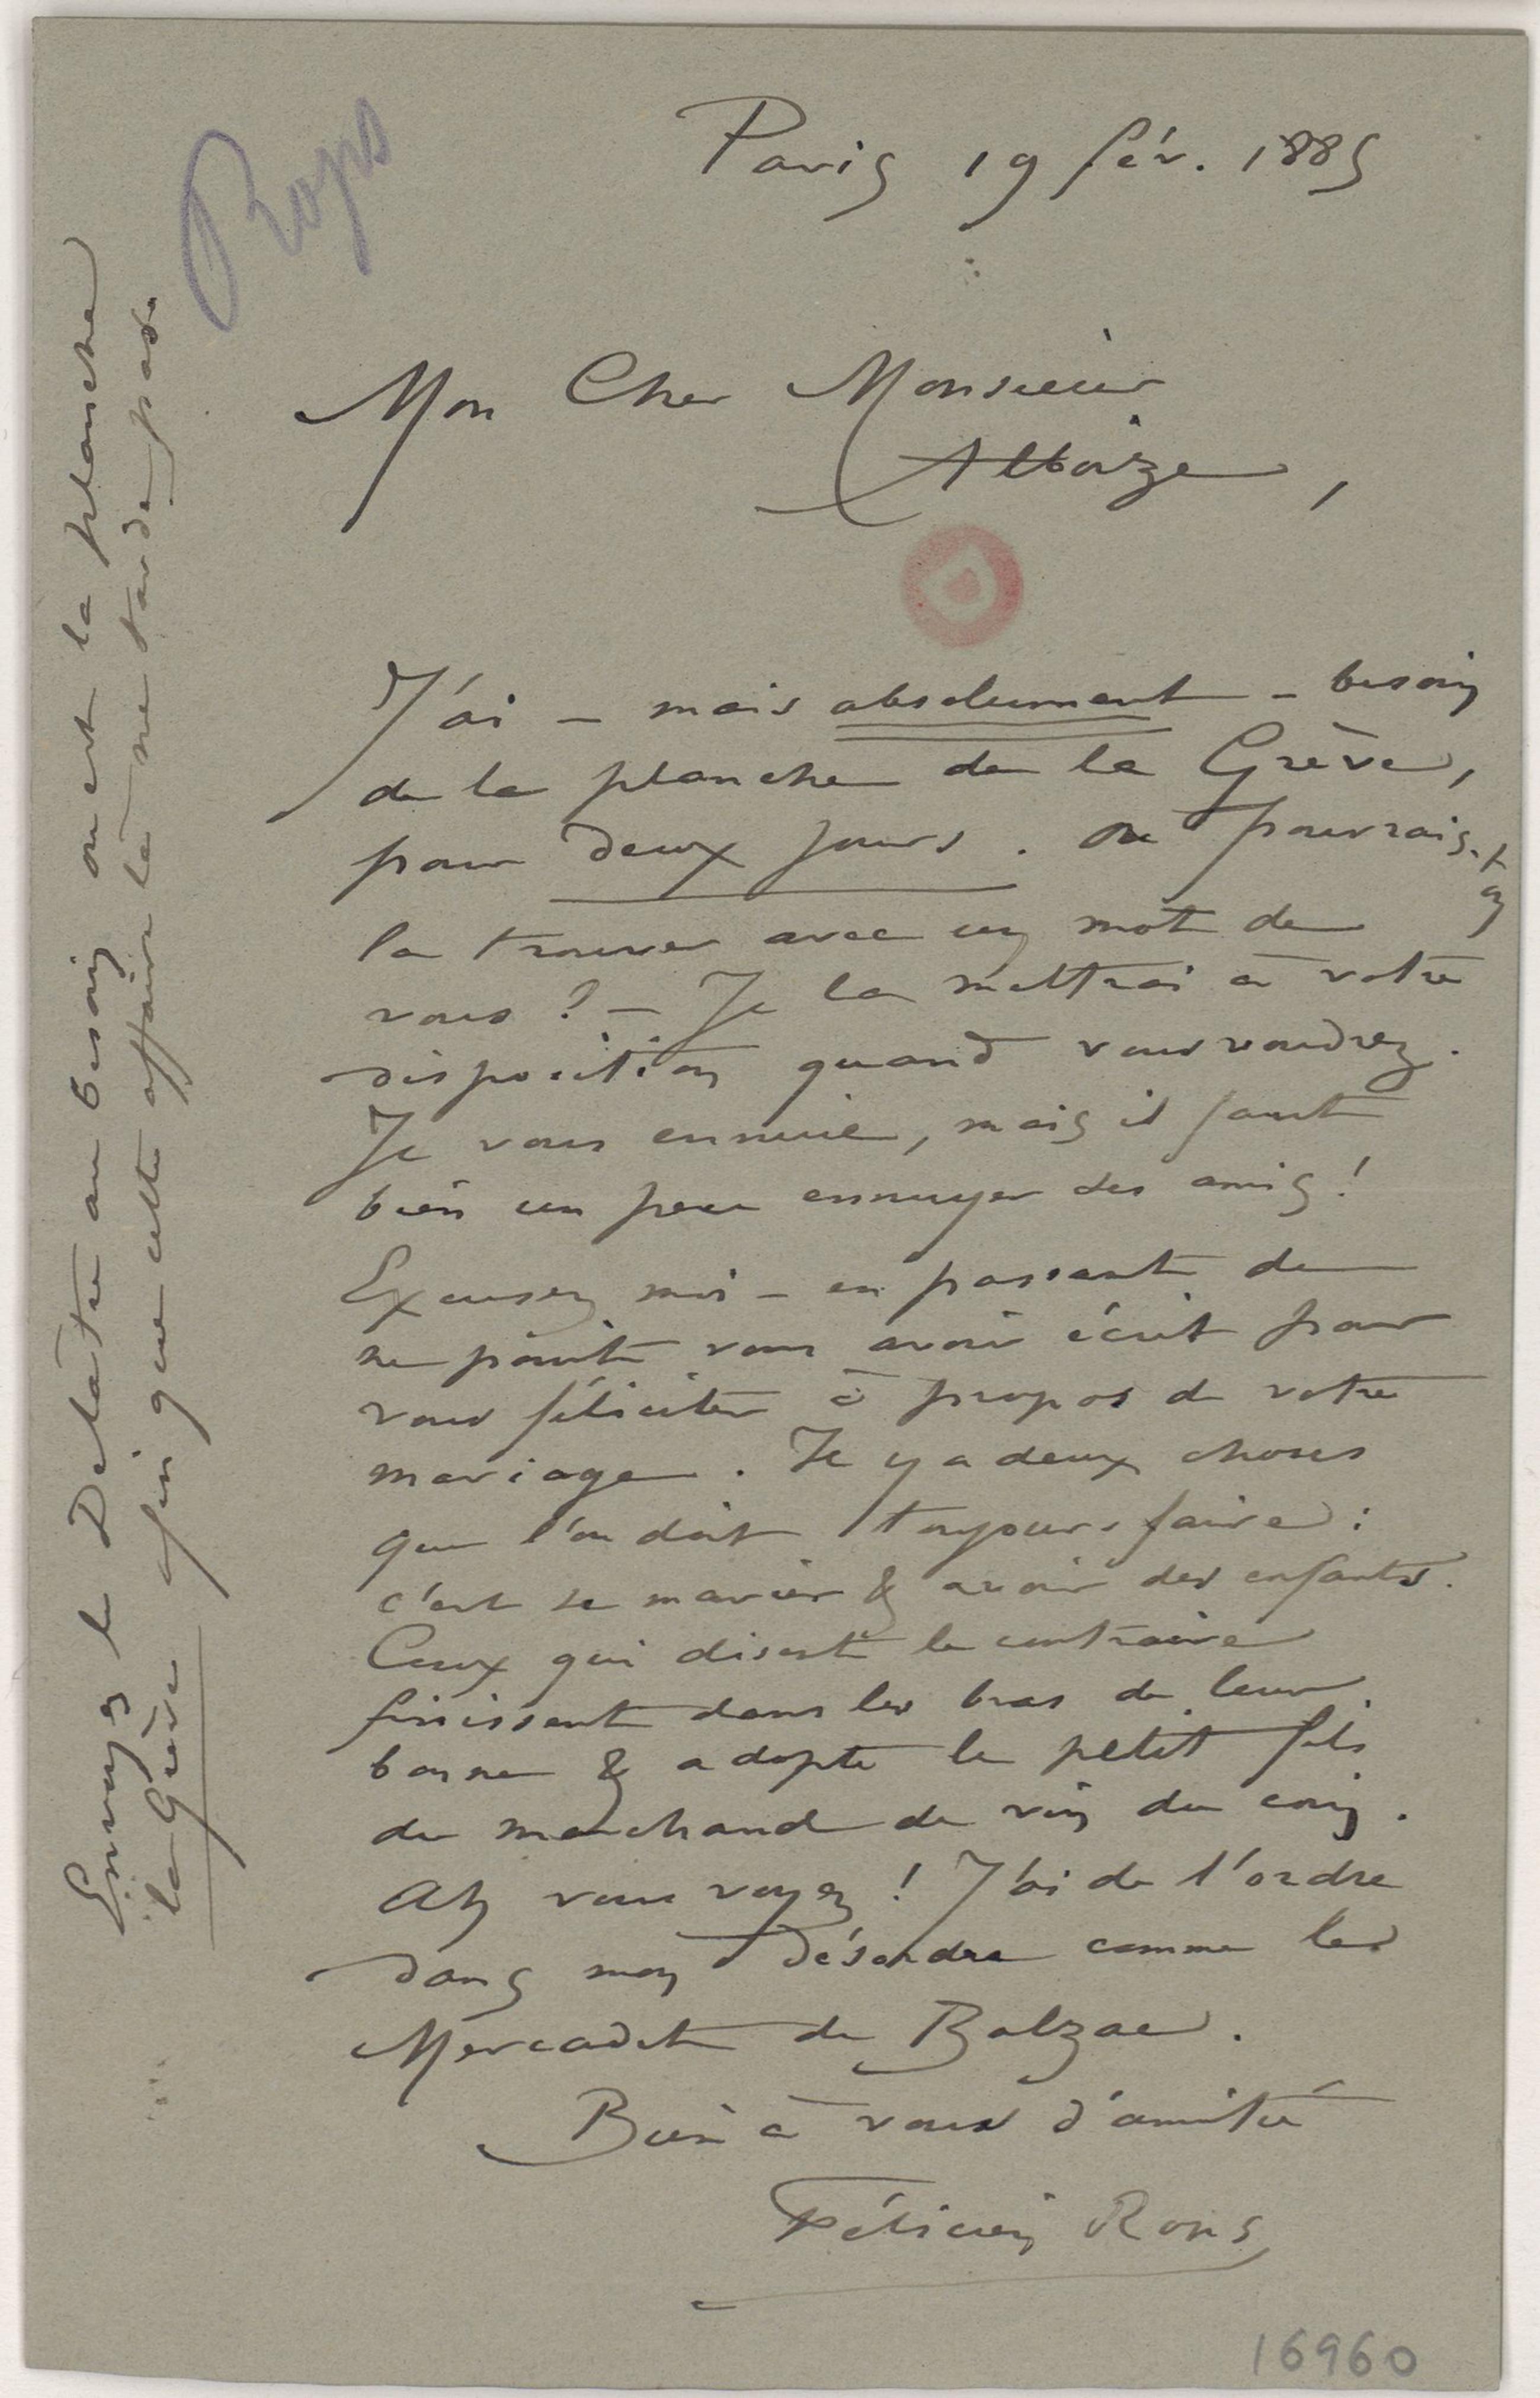 Rops
Paris 19 fév. 1885
Mon Cher Monsieur
Alboize,
J'ai – mais absolument – besoin
de la planche de la Grève,
pour deux jours. Ou pourrais-
la trouver avec un mot de
vous ? – Je la mettrai à votre
disposition quand vous voudrez.
Je vous ennuie, mais il faut
bien un peu ennuyer ses amis !
Excusez moi – en passant de
ne point vous avoir écrit pour
vous féliciter à propos de votre
mariage. Il y a deux choses
que l'on doit toujours faire :
c'est se marier & avoir des enfants.
Ceux qui disent le contraire
finissent dans les bras de leur
bonne & adopte le petit fils
du marchand de vin du coin.
Ah vous voyez ! J'ai de l'ordre
dans mon désordre comme les
Mercadet de Balzac.
Bien à vous d'amitié
Félicien Rops
Envoyez le Delâtre au besoin où est la planche
la Grève afin que cette affaire là ne tarde pas.
16960